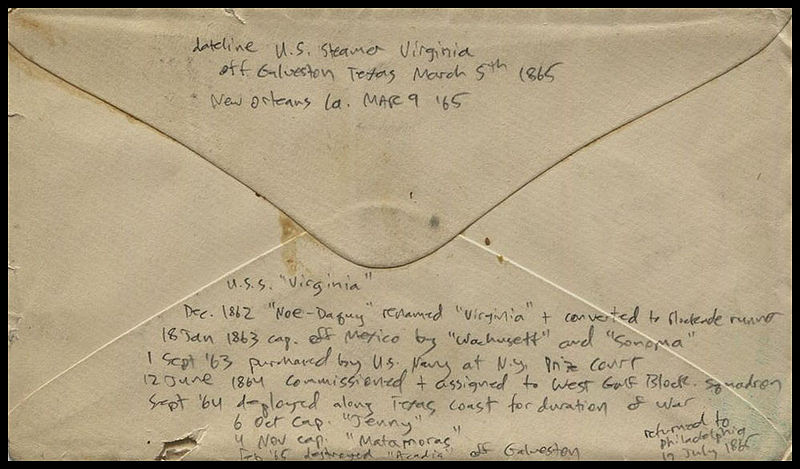 dateline U.S. Steamer Virginia
off Galveston Texas March 5th 1865
New Orleans La. MAR 9 '65
U.S.S. "Virginia"
Dec. 1862 "Noe-Daquy" renamed "Virginia" + converted to Blockade runner
18 Jan 1863 cap. off Mexico by "Wachusett" and "Sonoma"
1 Sept '63 purchased by U.S. Navy at N.Y. Priz Court
12 June 1864 commissioned + assigned to West Gulf Block. squadron
Sept '64 deployed along Texas coast for duration of war
6 Oct cap. "Jenny"
4 Nov cap. "Matamoras"
Feb '65 destroyed "Acadia" off Galveston
returned to
Philadelphia
12 July 1865